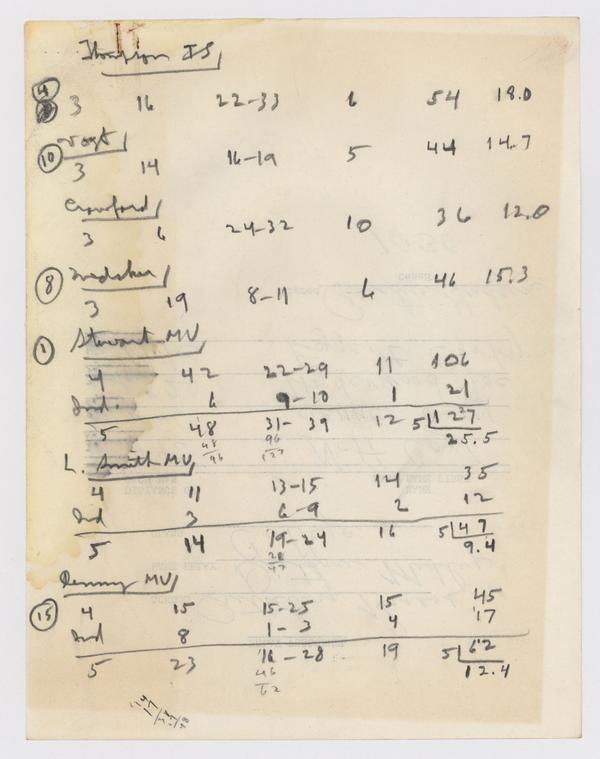 Thompson IS
4 3 16 22-33 6 54 18.0
Vogt
10 3 14 16-19 5 44 14.7
Crawford
3 6 24-32 10 36 12.0
8
3 19 8-11 6 46 15.3
1 Stewart MV
4 42 22-29 11 106
Ind. 6 9-10 1 21
5 48 31-39 12 5 127
48 96 25.5
96 127
L. Smith MV
4 11 13-15 14 35
Ind 3 6-9 2 12
5 14 19-24 16 5 47
28 9.4
47
Denny MV
15 4 15 15-25 15 45
Ind 8 1-3 4 17
5 23 16-28 19 5 62
46 12.4
62